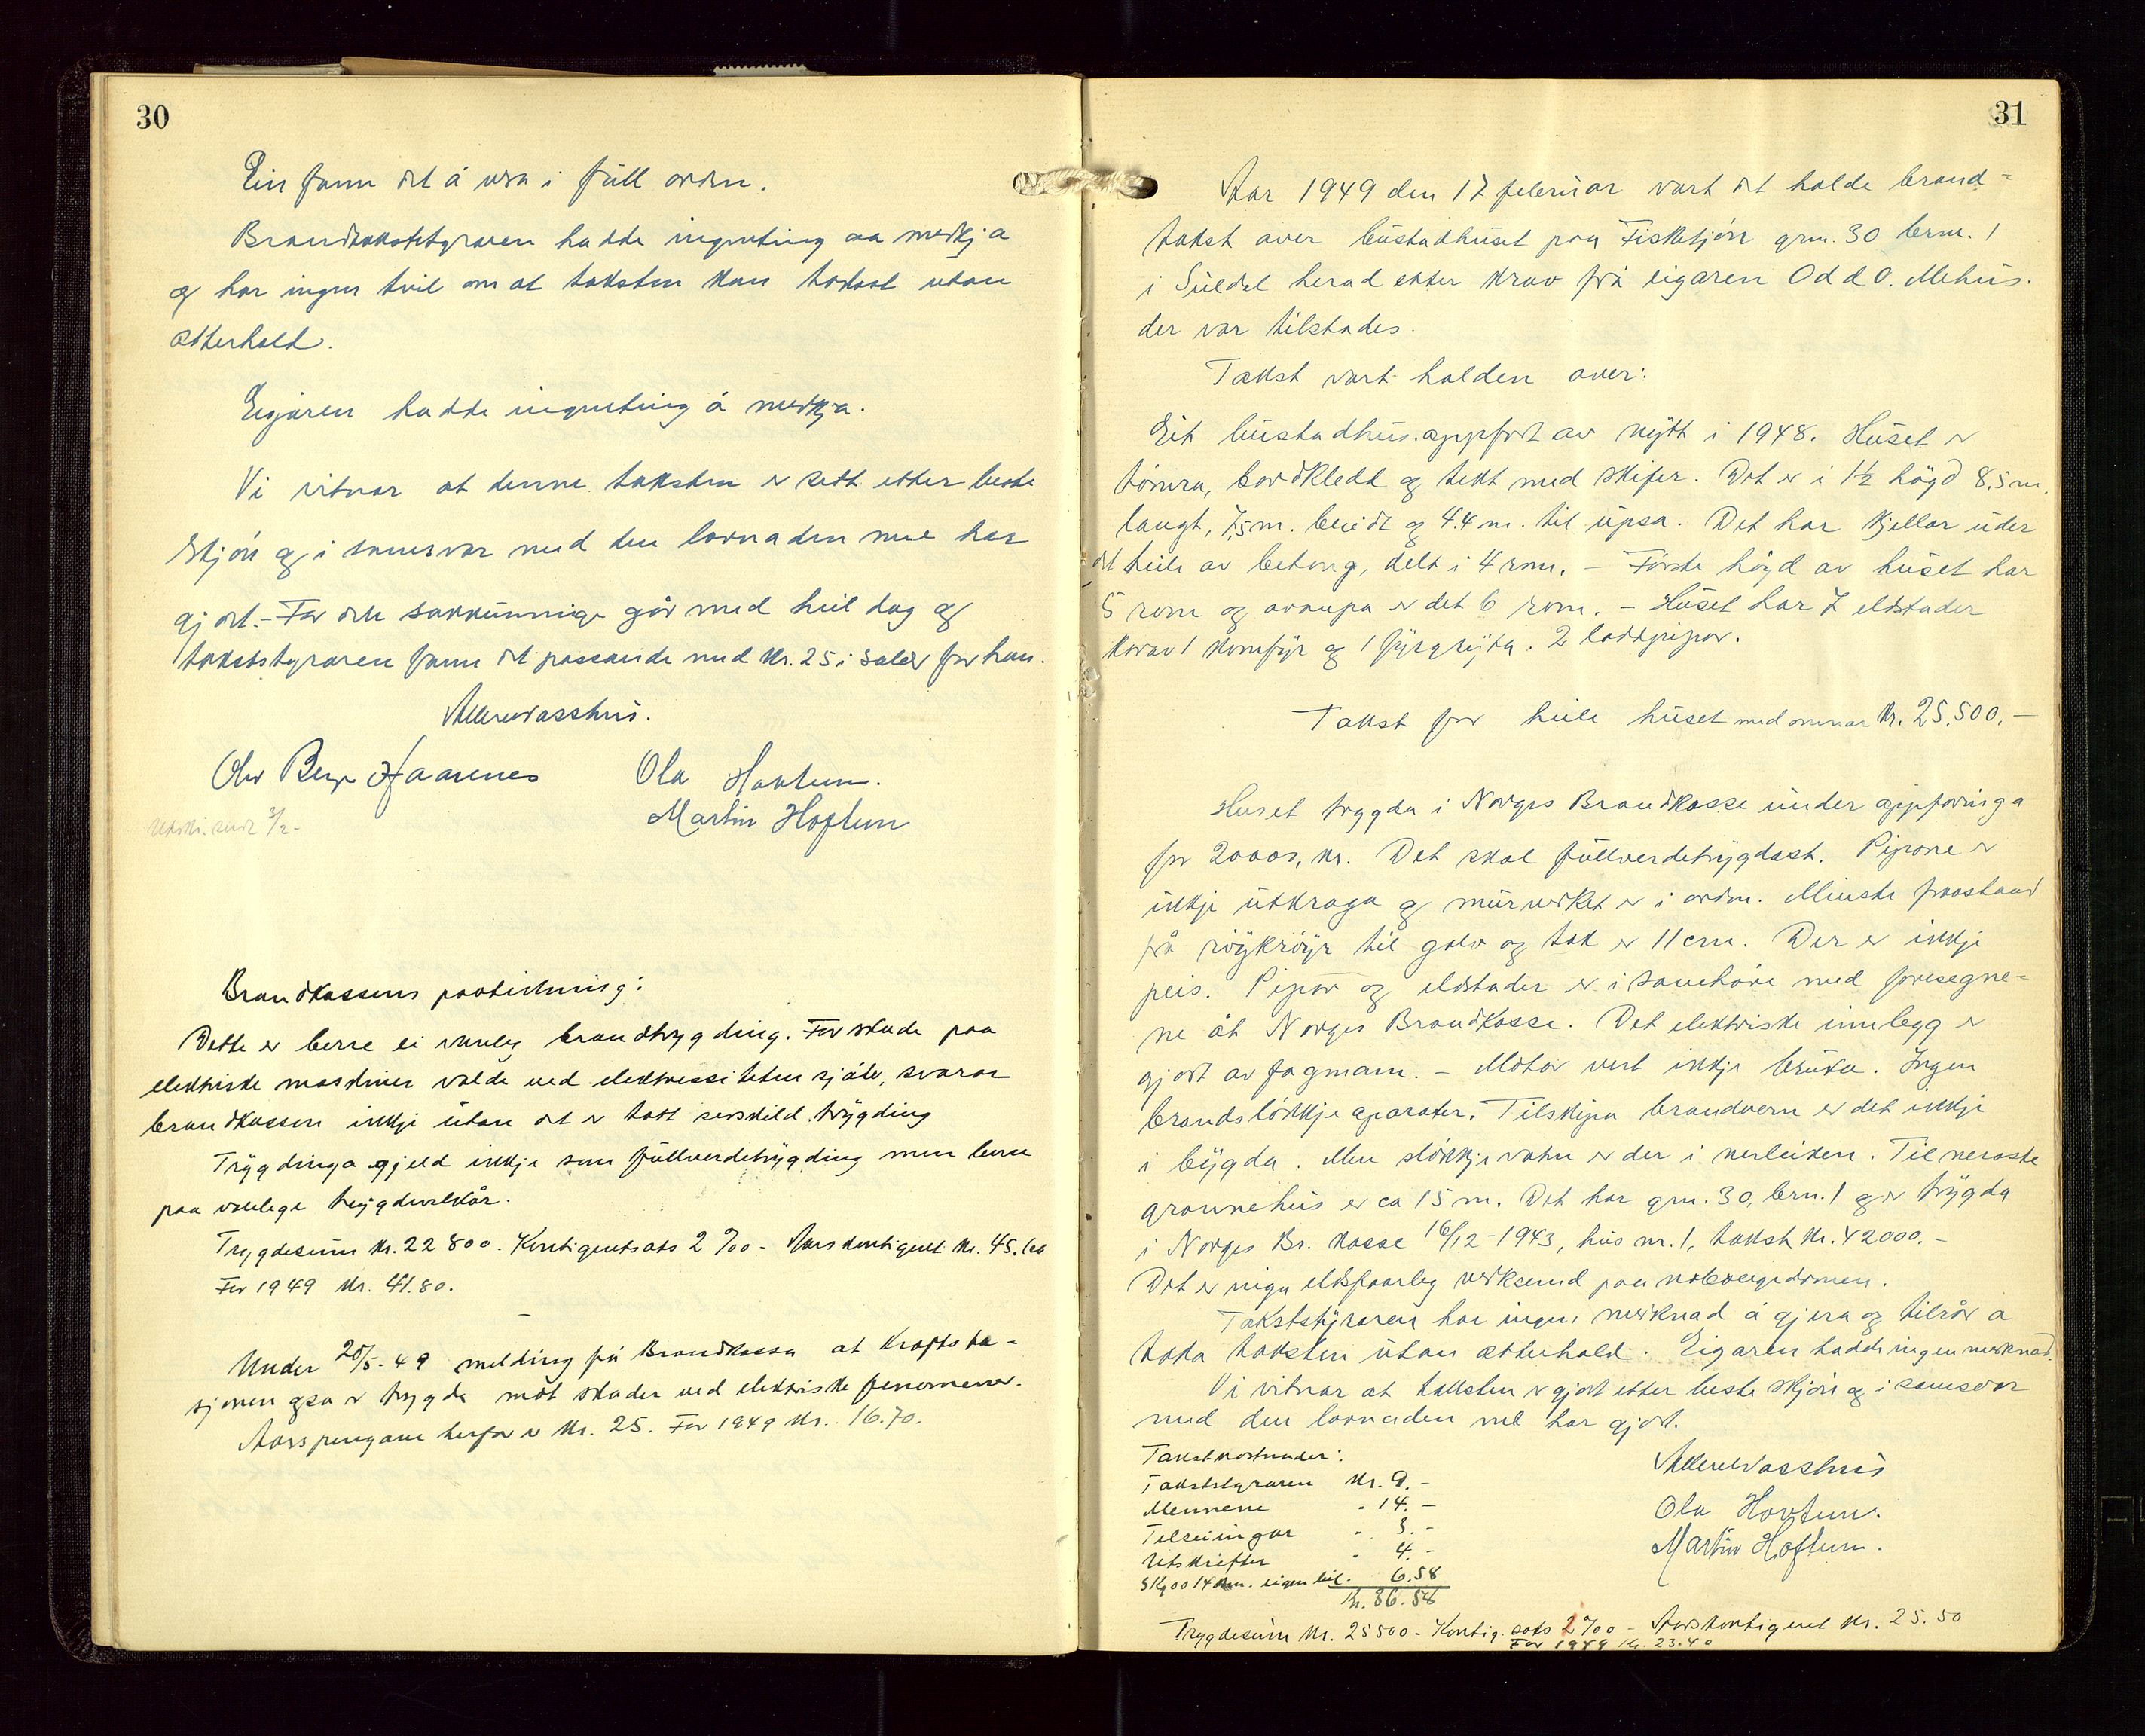 30
Ein fann det å vera i full orden.
Brandtakststyraren hadde ingenting aa merkja
og har ingen tvil om at taksten kan takast utan
atterhald.
Eigaren hadde ingenting å merkja.
Vi vitnar at denne taksten er sett etter beste
skjön og i samsvar med den lovnaden me har
gjort. - For dei sakkunnige går med heil dag og
takststyraren fann det passande med kr. 25 i salær for han.
Ola Hovtun.
Martin Hoftun
Utskr. send 3/2 -
Brandkassens paateikning:
Dette er berre ei vanleg brandtrygding. For skade paa
elektriske maskiner valda ved elektrissiteten sjölv, svarar
brandkassen ikkje utan det er tatt serskild trygding
Trygdinga gjeld ikkje som fullverdetrygding men berre
paa vanlege trygdevilkår.
Trygdesum kr. 22800. Kontigentsats 2 ‰ - Aarskontigent kr. 45.60
For 1949 kr. 41.80.
Under 20/5-49 melding frå Brandkassa at kraftsta-
sjonen ogso er trygda mot skader ved elektriske fenomener.
Aarspengane herfor er kr. 25. For 1949 kr. 16.70.
31
Aar 1949 den 17 februar vart det halde brand-
takst over bustadhuset paa Fisketjön grn. 30 brn. 1
i Suldal herad etter krav frå eigaren Odd O. Mehus.
der var tilstades.
Takst vart halden over:
Eit bustadhus. oppført av nytt i 1948. Huset er
tömra, bordkledt og tekt med skifer. Det er i 1½ högd 8,5 m.
langt, 7,5 m. breidt og 4.4 m. til upsa. Det har kjellar uder
det heile av betong, delt i 4 rom. - Förste högd av huset har
5 rom og ovanpa er det 6 rom. - Huset har 7 eldstader
korav 1 komfyr og 1 fyrgryta. 2 loddpipor.
Takst for heile huset med omnar kr. 25.500.-
Huset trygda i Norges Brandkasse under oppföringa
for 20000, kr. Det skal fullverdetrygdast. Pipone er
ikkje utkraga og murverket er i orden. Minste fraastand
frå röykröyr til golv og tak er 11 cm. Der er ikkje
peis. Pipor og eldstader er i samhöve med foresegne-
ne åt Norges Brandkasse. Det elektriske innlegg er
gjort av fagmann. - Motor vert ikkje bruka. Ingen
brandslökkje aparater. Tilskipa brandvern er det ikkje
i bygda. Men slökkjevatn er der i nerleiken. Til neraste
grannehus er ca 15 m. Det har grn. 30, brn. 1 og er trygda
i Norges Br. kasse 16/12-1943, hus nr. 1, takst kr. 42000.-
Det er ingen eldsfaarleg verksemd paa naboeigedomen.
Takststyraren har ingen merknad å gjera og tilrår å
taka taksten utan atterhald. Eigaren hadde ingen merknad.
Vi vitnar at taksten er gjort etter beste skjön og i samsvar
med den lovnaden me har gjort.
Takstkostnader:
Takststyraren kr. 9.-
Mennene " 14.-
Telseiingar " 3.-
Utskrifter " 4.-
Skyss 14 km. eigen bil. 6.58
Kr. 36.58
Ola Hovtun.
Martin Hoftun.
Trygdesum kr. 25500 - Kontig. sats 1 ‰ - Aarskontigent kr. 25.50
For 1949 kr. 23.40